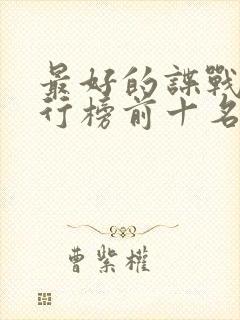 最好的諜戰
行榜前十名
曹紫權